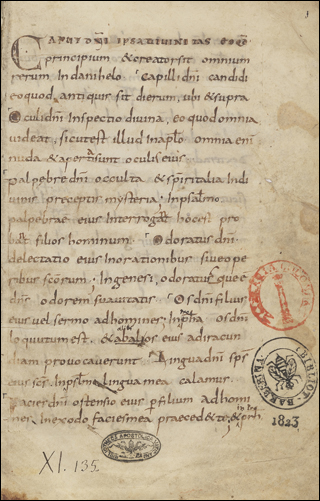 CAPUT DNI IPSA DIVINITAS EO QD
principium & creator sit omnium
rerum In danihelo Capilli dni candidi
eo quod antiquus sit dierum, ubi & supra
Oculi dni Inspectio divina, eo quod omnia
videat, sicut est illud In aplo omnia eni
nuda & aperta sunt oculis eius
palpebre dni occulta & spiritalia Indi
vinis preceptis mysteria; In psalmo
palpebrae eius Interrogat hoc est pro
bat filios hominum Odoratus dni
delectatio eius In orationibus sive ope
ribus scorum; In genesi, odoratusque e
dns odorem suavitatis Os dni filius
eius vel sermo ad homines; In pheta os dni
locutum est, & alibi
ham provocaverunt Lingua dni sps
eius scs, In psalmo lingua mea calamus
Facies dni ostensio eius per filium ad homi
nes, In exodo facies mea praecedet te, &
1823
XI. 135